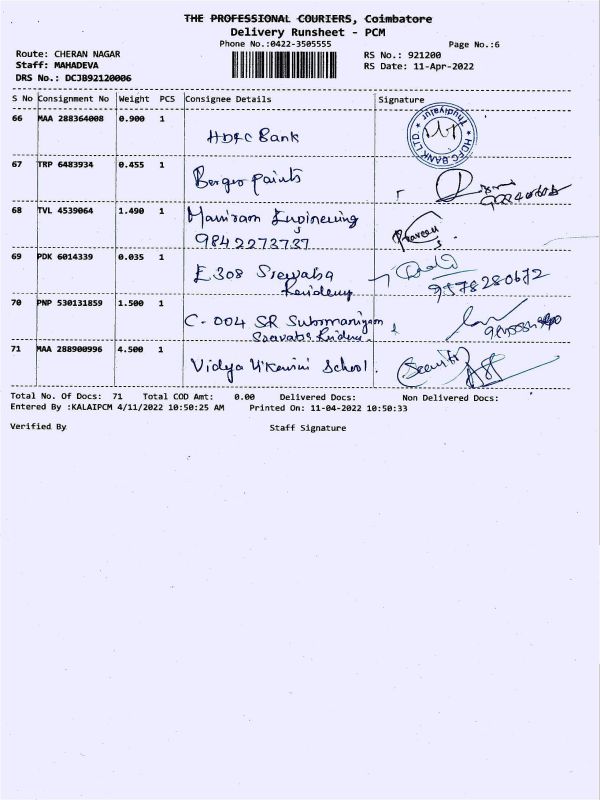 THE PROFESSIONAL COURIERS, Coimbatore
Delivery Runsheet - PCM
Phone No.:0422-3505555
Page No.:6
Route: CHERAN NAGAR
RS No.: 921200
Staff: MAHADEVA
RS Date: 11-Apr-2022
DRS No.: DCJB92120006
S No Consignment No Weight PCS Consignee Details Signature
66 MAA 288364008 0.900 1
HDFC Bank
HDFC BANK LTD Thudiyalur
67 TRP 6483934 0.455 1
Berger paints
68 TVL 4539064 1.490 1 Maniram Engineering
9842273737 Praveen
69 PDK 6014339 0.035 1
E 308 9578280672
70 PNP 530131859 1.500 1
C-004 SR Subramaniyam
71 MAA 288900996 4.500 1
Vidya Vikasini School. Security
Total No. Of Docs: 71 Total COD Amt: 0.00 Delivered Docs: Non Delivered Docs:
Entered By :KALAIPCM 4/11/2022 10:50:25 AM Printed On: 11-04-2022 10:50:33
Verified By Staff Signature